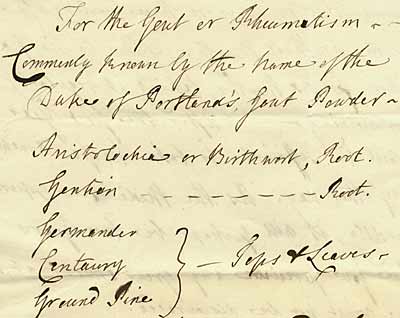 For the Gout or Rheumatism - -
Commonly known by the Name of the
Duke of Portland's, Gout Powder -
Aristolochia or Birthwort, Root.
Gentian - - - - - - - Root.
Germander
Centaury } - Tops & Leaves -
Ground Pine